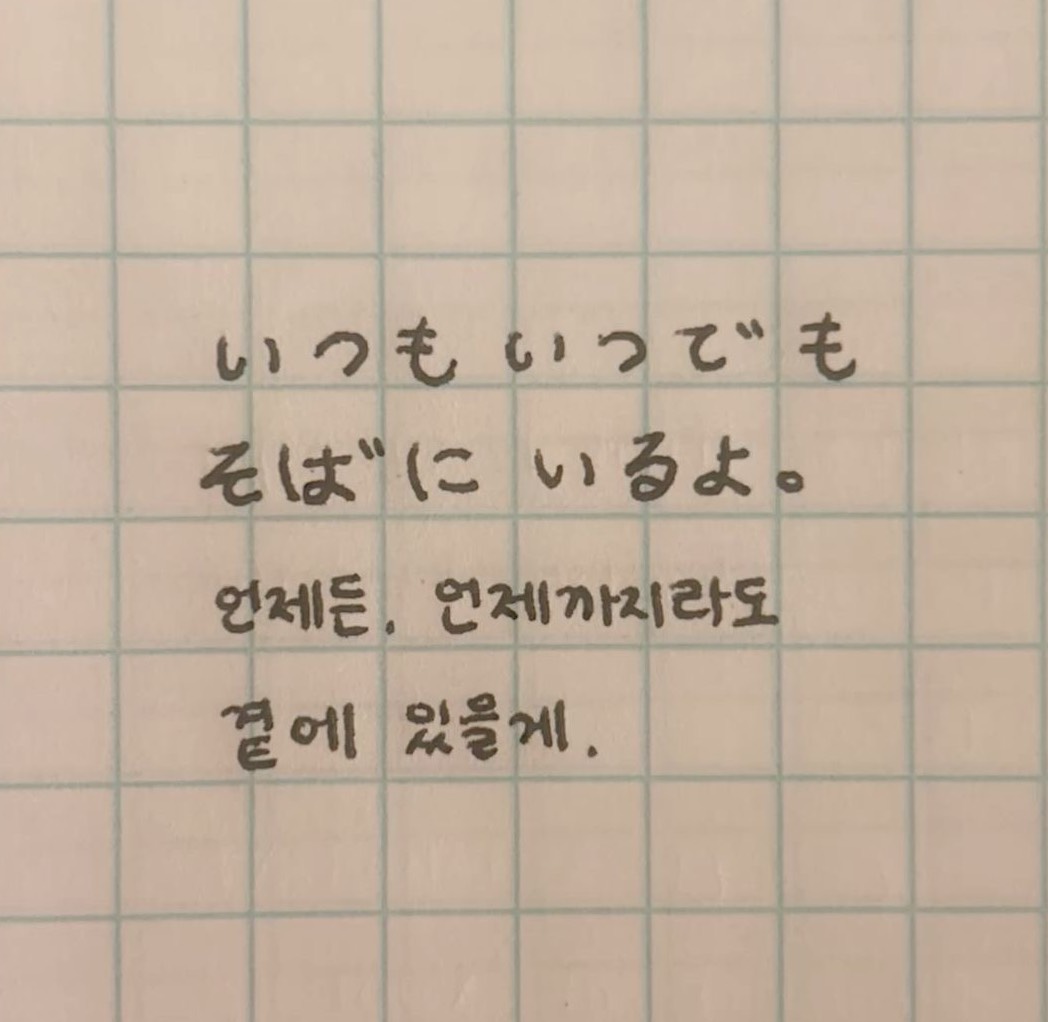 いつも いつでも
そばに いるよ。
언제든, 언제까지라도
곁에 있을게.